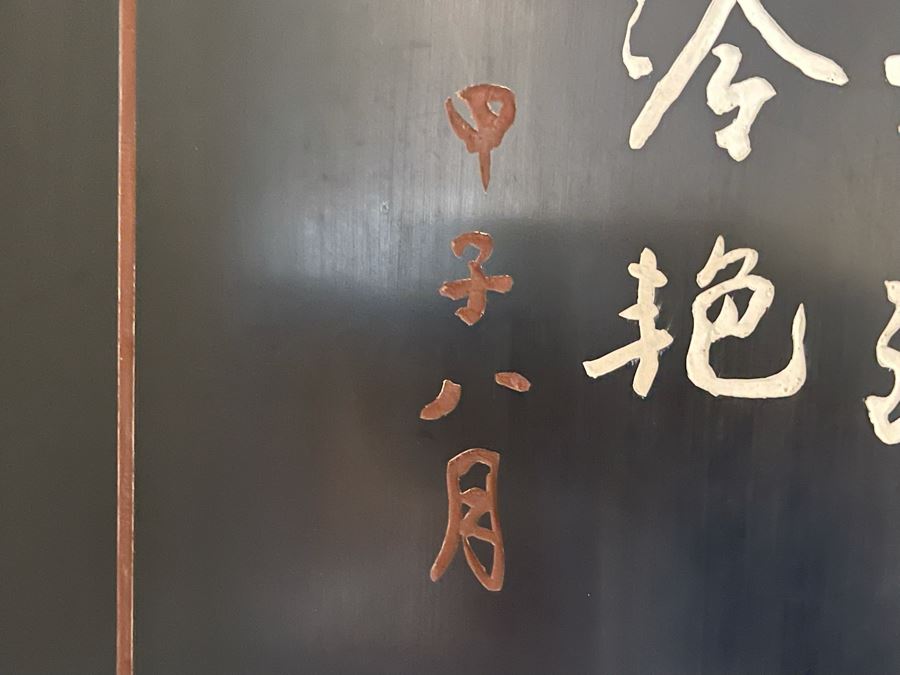 冷艳
甲子八月